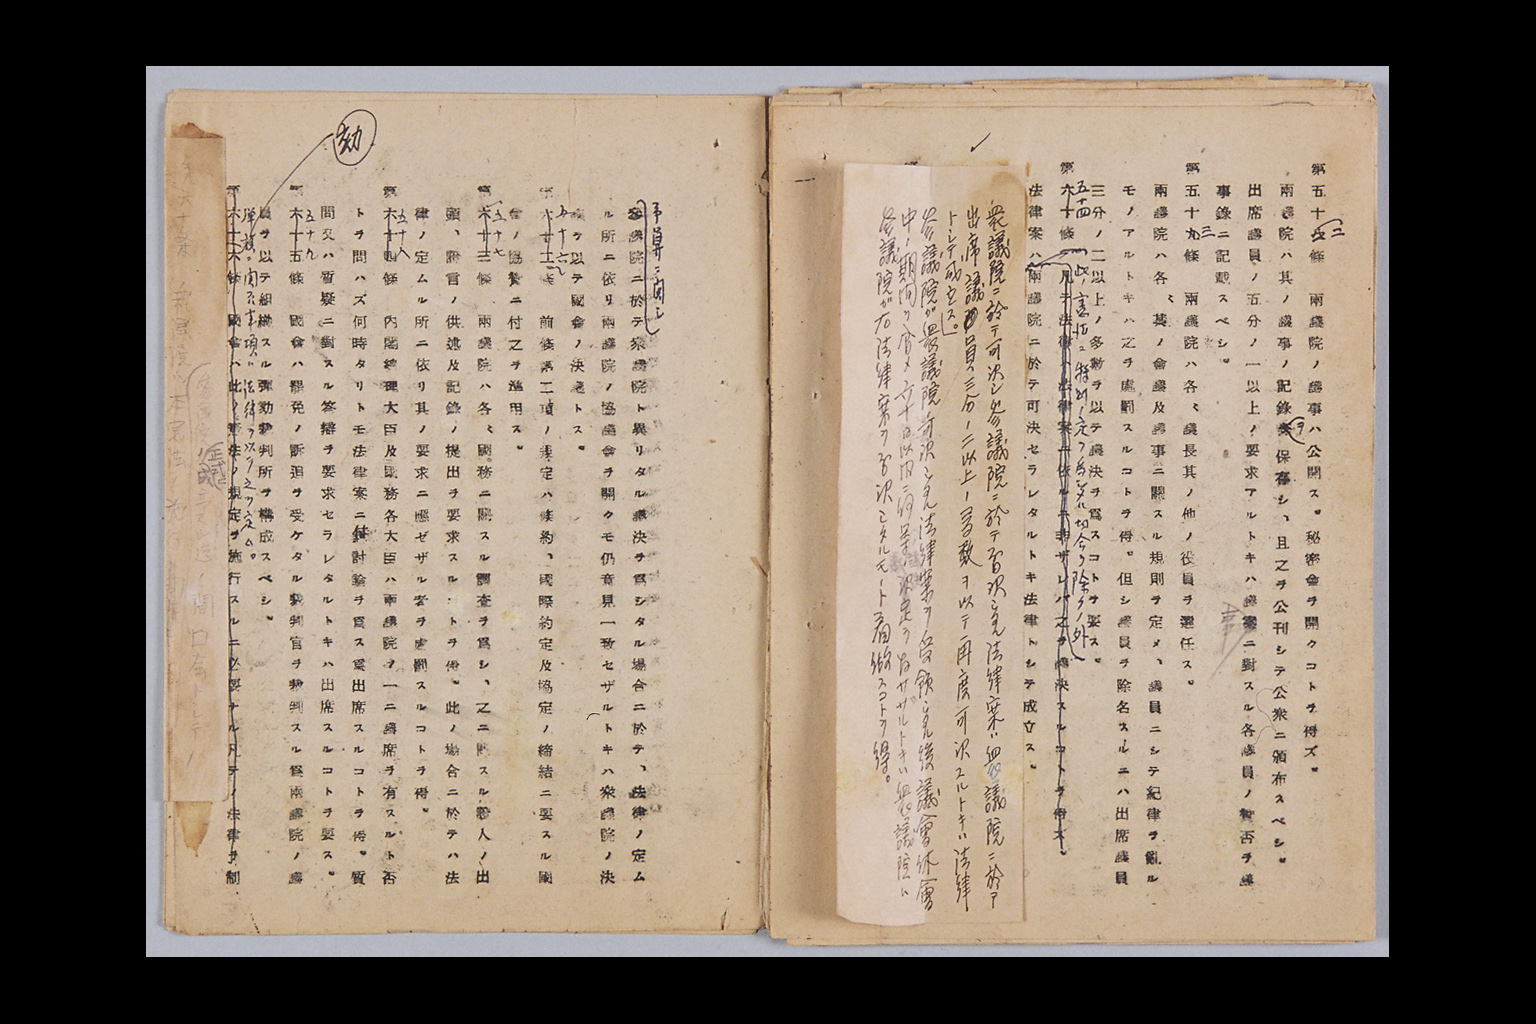 第五十五條　兩議院ノ議事ハ公開ス。秘密會ヲ開クコトヲ得ズ。
三
兩議院ハ其ノ議事ノ記錄ヲ保存シ、且之ヲ公刊シテ公衆ニ頒布スベシ。
出席議員ノ五分ノ一以上ノ要求アルトキハ議案ニ對スル各議員ノ贊否ヲ議
事錄ニ記載スベシ。
第五十九條　兩議院ハ各〻議長其ノ他ノ役員ヲ選任ス。
三
兩議院ハ各〻其ノ會議及議事ニ關スル規則ヲ定メ、議員ニシテ紀律ヲ亂ル
モノアルトキハ之ヲ處罰スルコトヲ得。但シ議員ヲ除名スルニハ出席議員
三分ノ二以上ノ多數ヲ以テ議決ヲ爲スコトヲ要ス。
五十四
此ノ憲法ニ特別ノ定アル場合ヲ除クノ外
第六十條　凡テ法律ハ法律案ニ依ルニ非ザレバ之ヲ議決スルコトヲ得ズ。
法律案ハ兩議院ニ於テ可決セラレタルトキ法律トシテ成立ス。
衆議院ニ於テ可決シ參議院ニ於テ否決シタル法律案ハ衆議院ニ於テ
出席議員三分ノ二以上ノ多數ヲ以テ再度可決スルトキハ法律
トシテ成立ス。
參議院ガ衆議院ノ可決シタル法律案ヲ受領シタル後議會休會
中ノ期間ヲ除キ六十日以內ニ議決ヲ爲サザルトキハ衆議院ハ
參議院ガ右法律案ヲ否決シタルモノト看做スコトヲ得。
劾
予算ニ關シ
參議院ニ於テ衆議院ト異リタル議決ヲ爲シタル場合ニ於テ、法律ノ定ム
ル所ニ依リ兩議院ノ協議會ヲ開クモ仍意見一致セザルトキハ衆議院ノ決
議ヲ以テ國會ノ決議トス。
五十六
第六十二條　前條第二項ノ規定ハ條約、國際約定及協定ノ締結ニ要スル國
會ノ協贊ニ付之ヲ準用ス。
五十七
第六十三條　兩議院ハ各〻國務ニ關スル調査ヲ爲シ、之ニ關スル證人ノ出
頭、證言ノ供述及記錄ノ提出ヲ要求スルコトヲ得。此ノ場合ニ於テハ法
律ノ定ムル所ニ依リ其ノ要求ニ應ゼザル者ヲ處罰スルコトヲ得。
五十八
第六十四條　內閣總理大臣及國務各大臣ハ兩議院ノ一ニ議席ヲ有スルト否
トヲ問ハズ何時タリトモ法律案ニ付討論ヲ爲ス爲出席スルコトヲ得。質
問又ハ質疑ニ對スル答辯ヲ要求セラレタルトキハ出席スルコトヲ要ス。
五十九
第六十五條　國會ハ罷免ノ訴追ヲ受ケタル裁判官ヲ裁判スル爲兩議院ノ議
員ヲ以テ組織スル彈劾裁判所ヲ構成スベシ。
彈劾ニ關スル事項ハ法律ヲ以テ之ヲ定ム。
第六十六條　國會ハ此ノ憲法ノ規定ヲ施行スルニ必要ナル凡テノ法律ヲ制